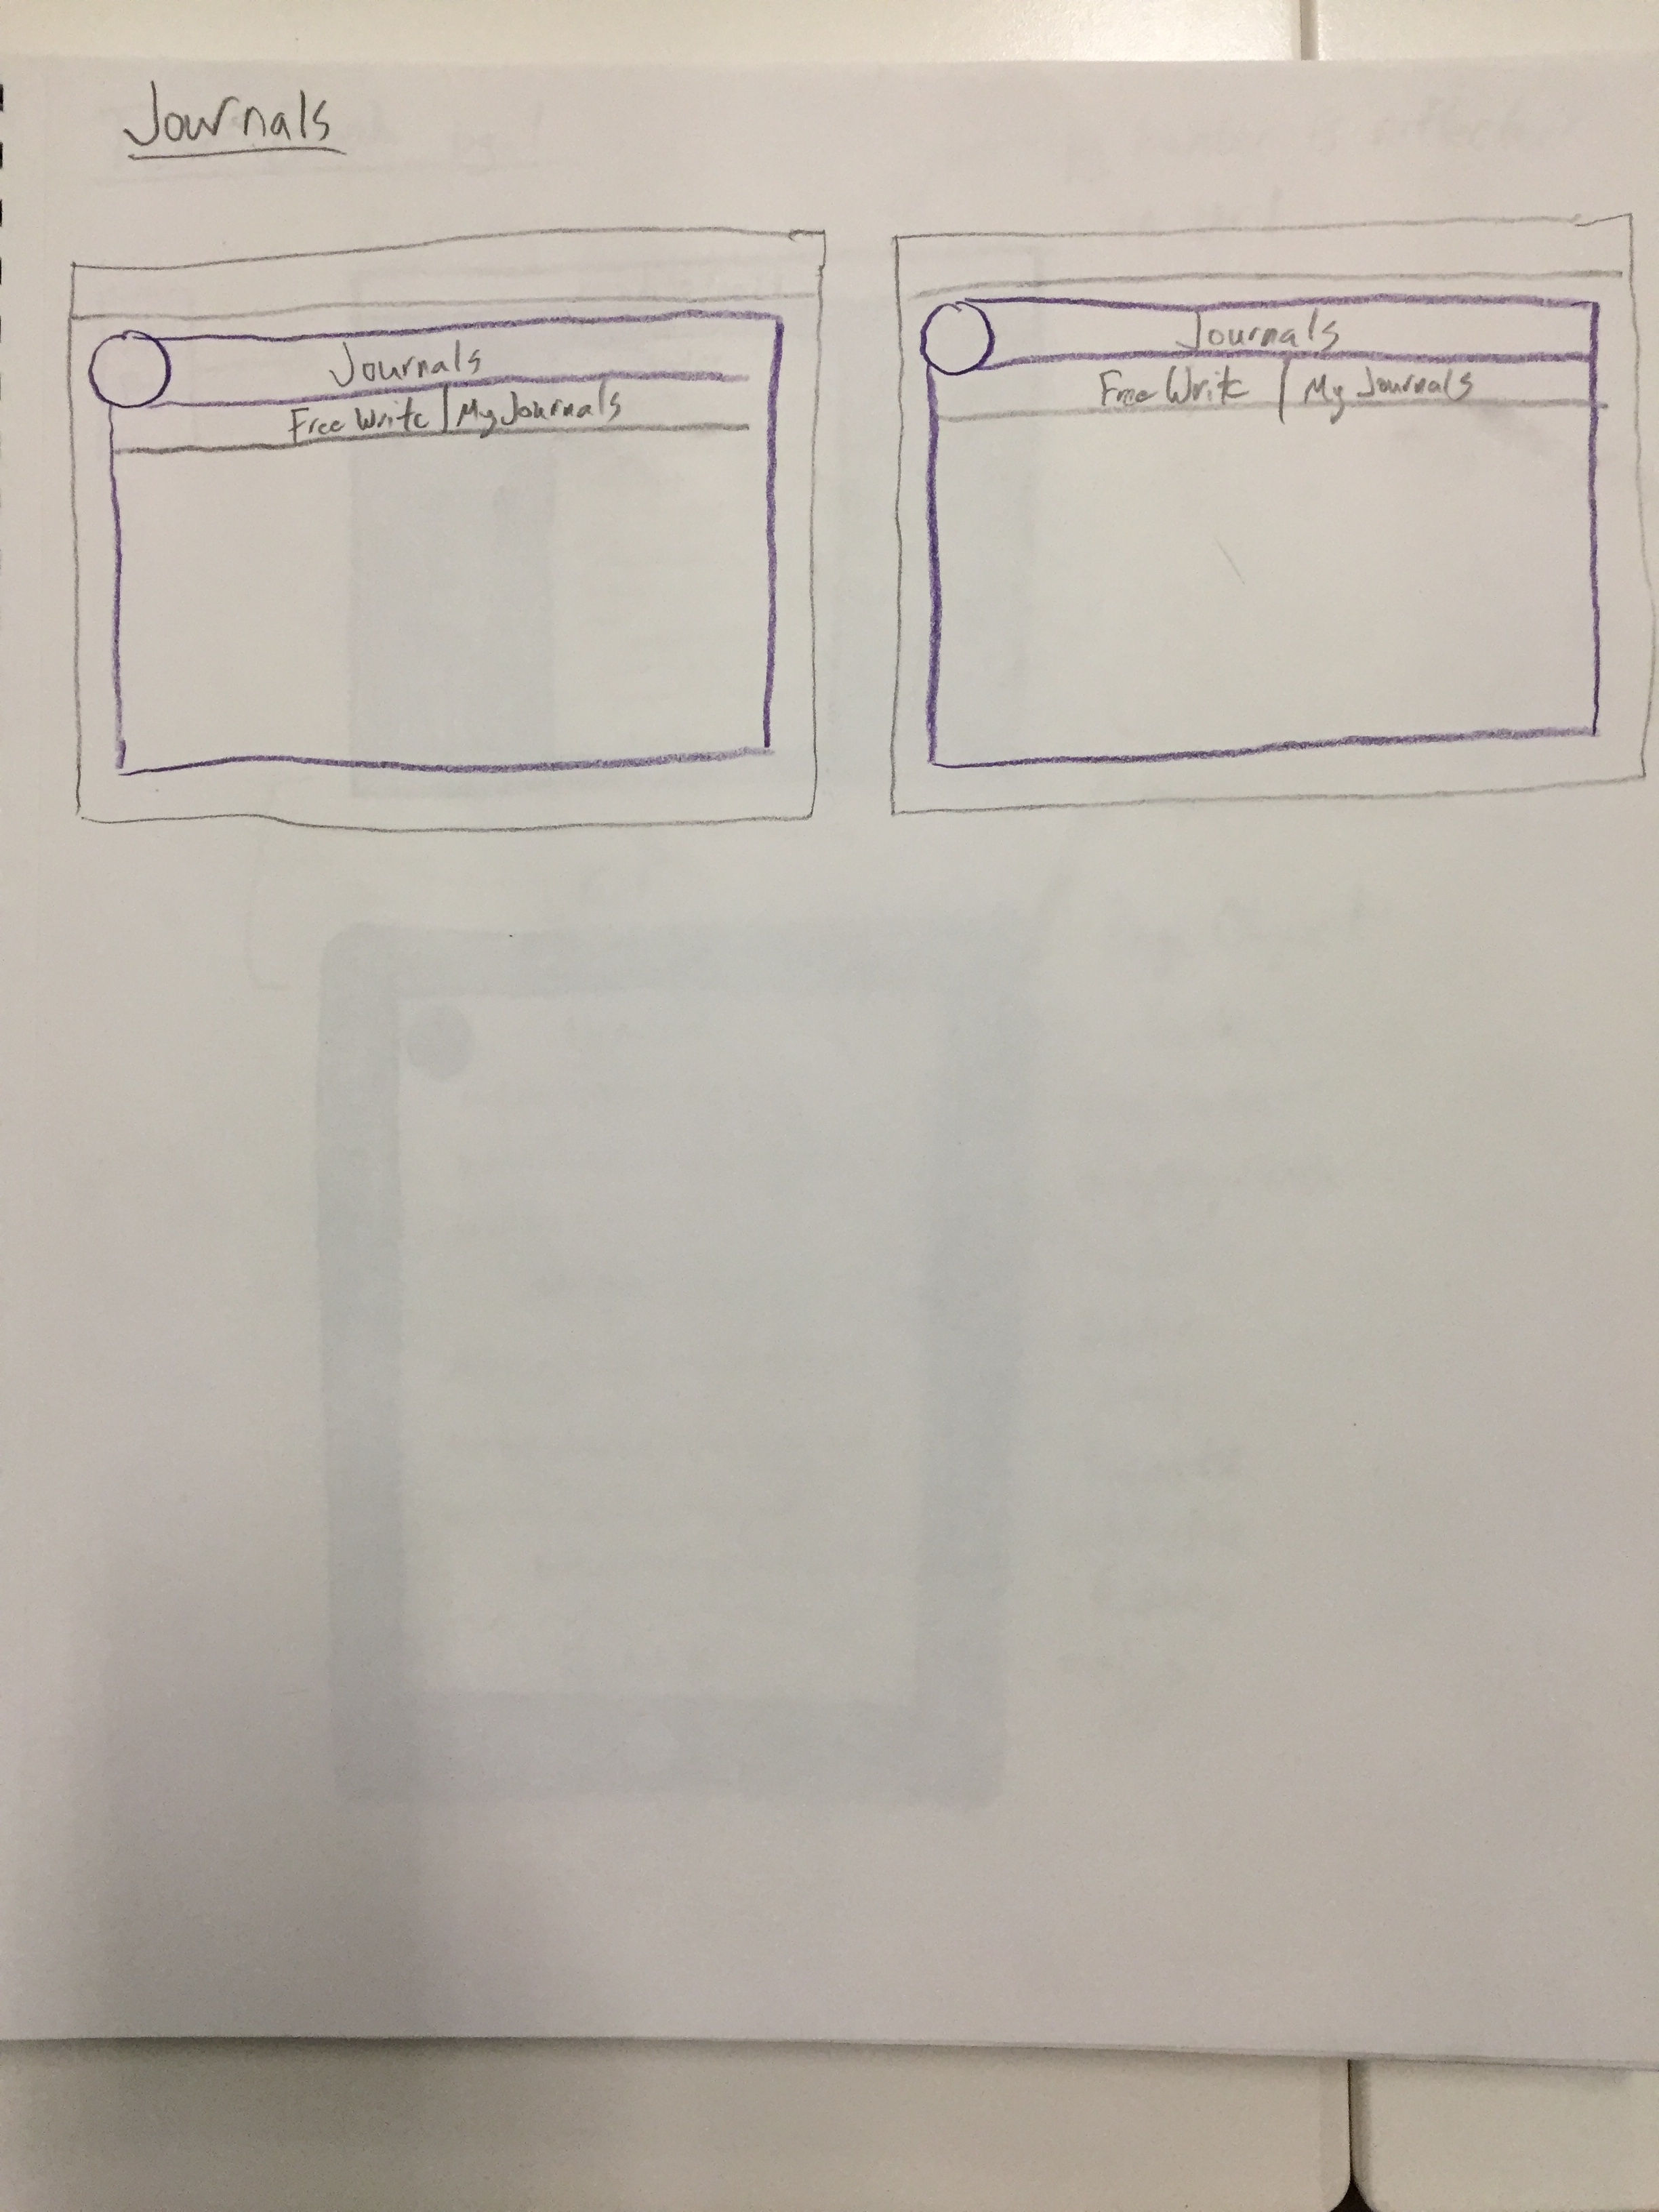 Journals
Journals
Free Write | My Journals
Journals
Free Write | My Journals